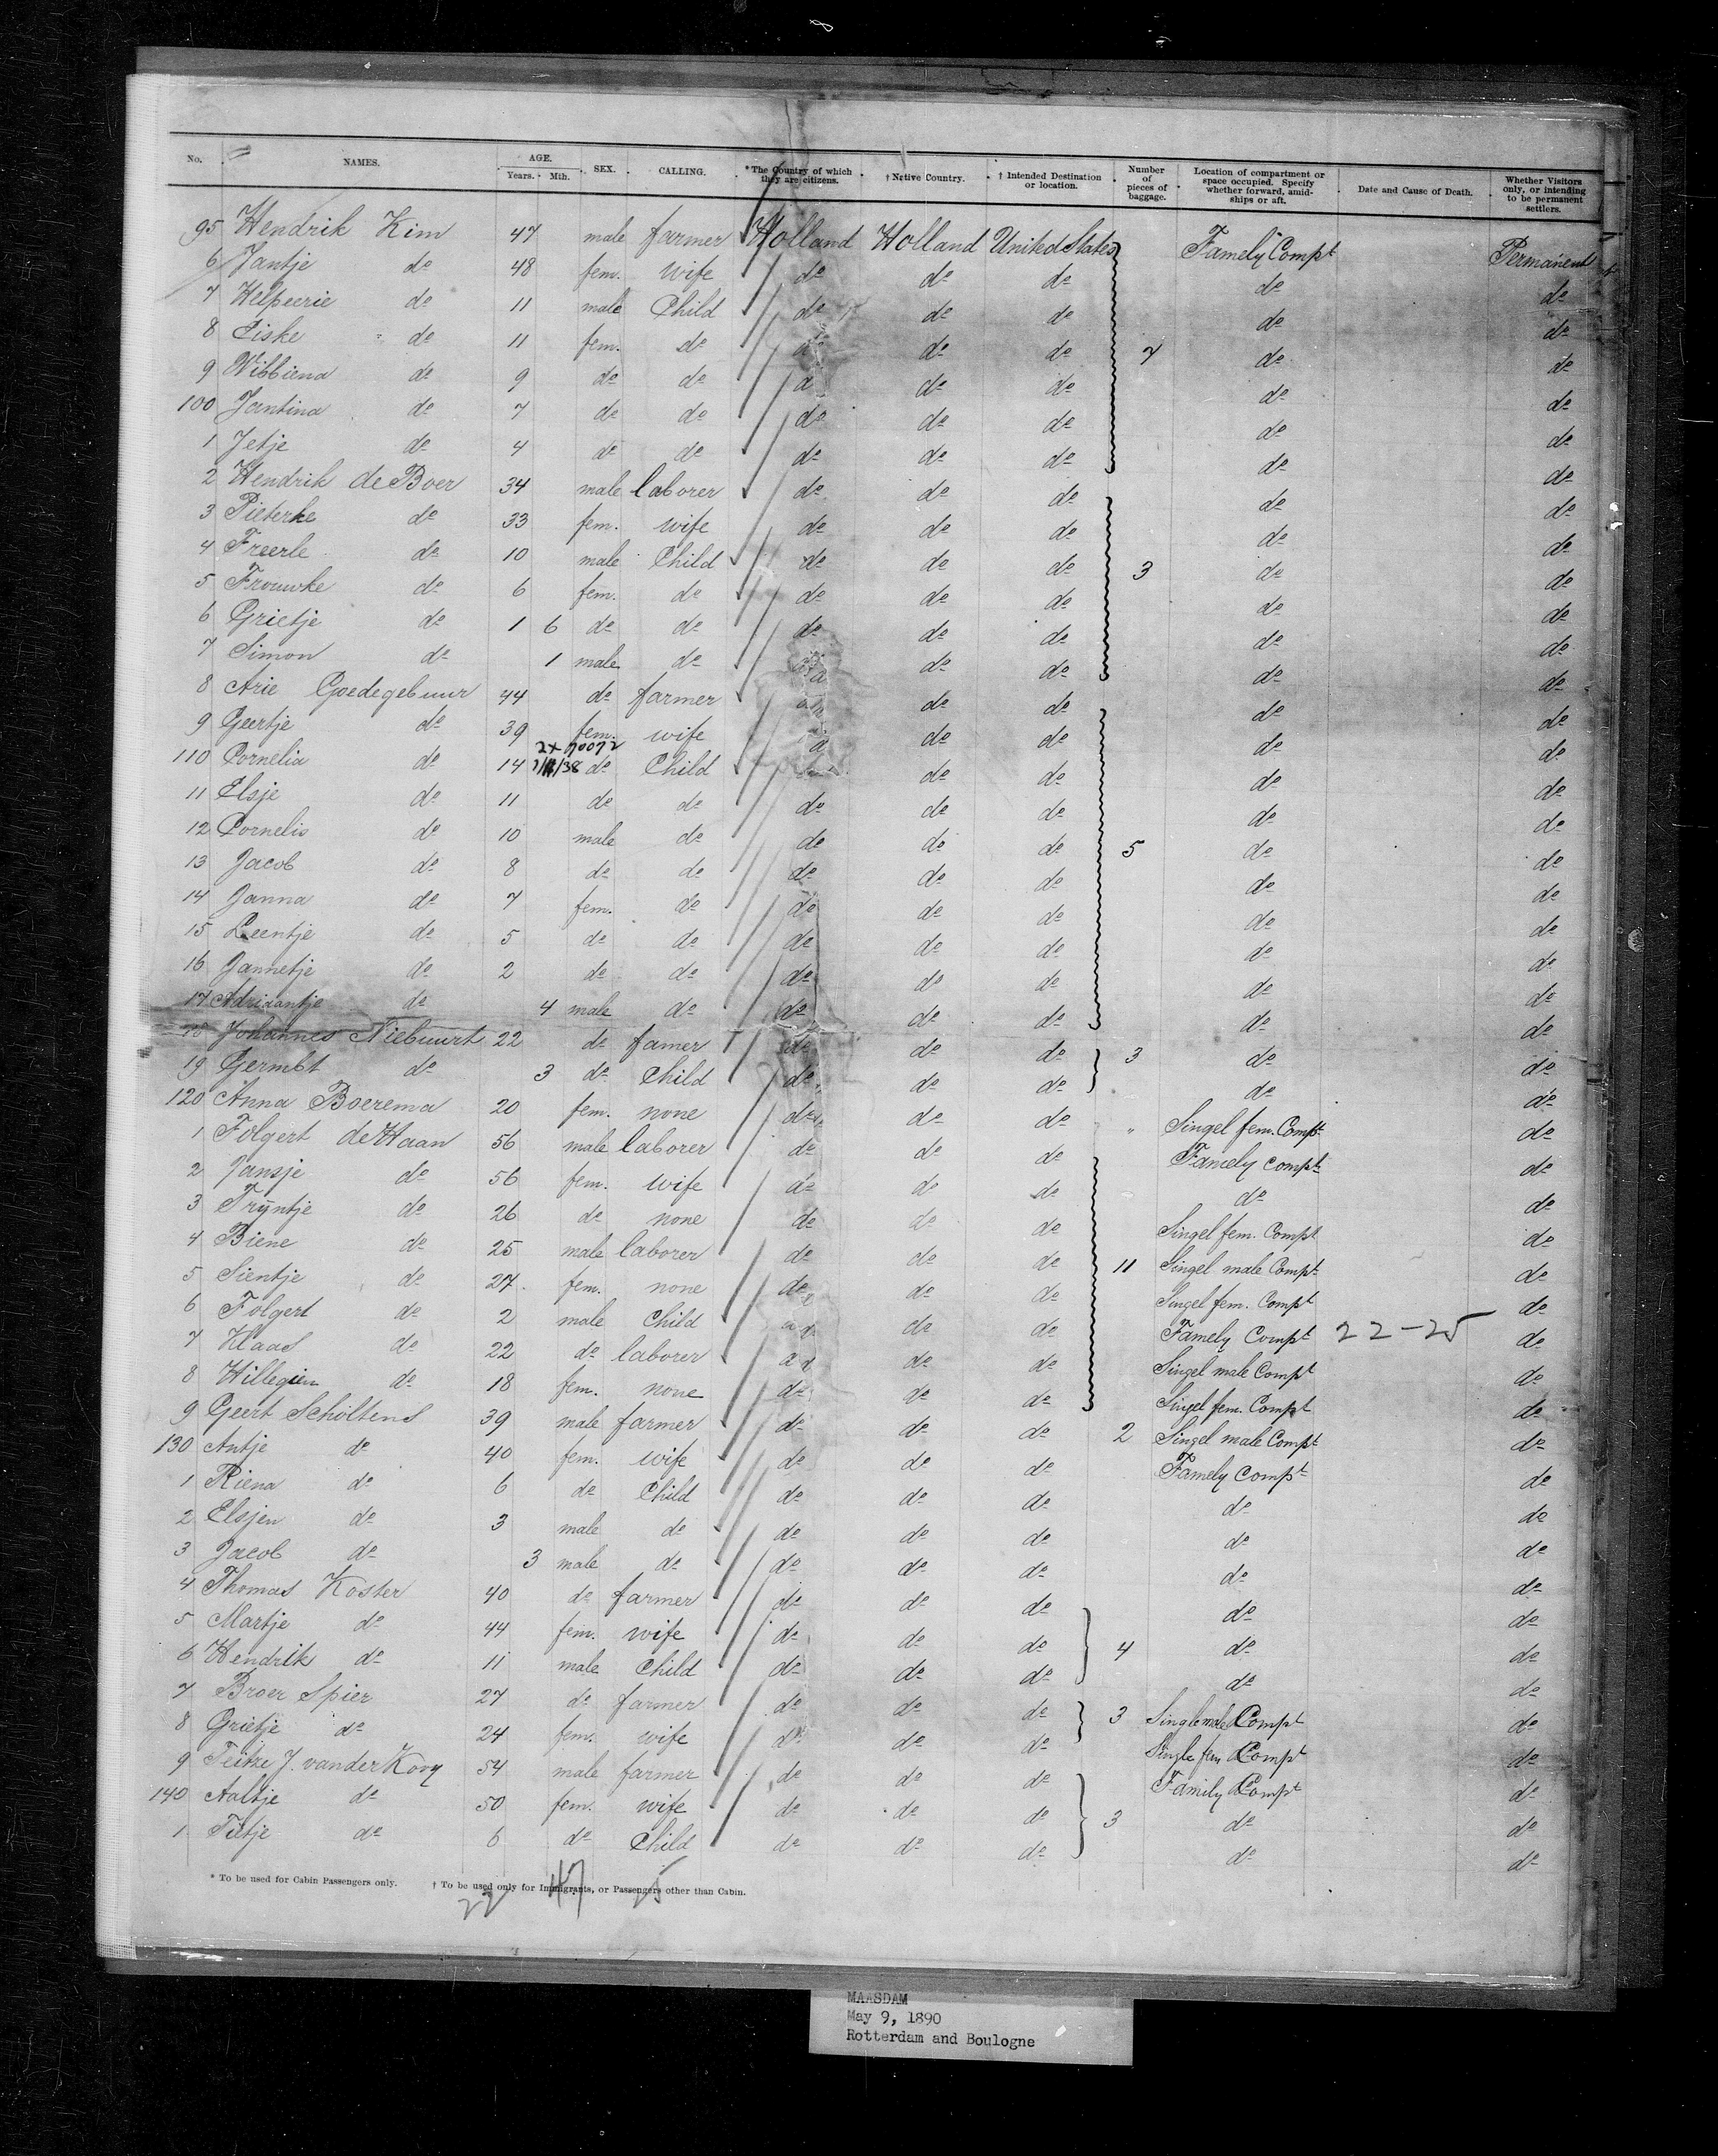 8
No. NAMES. AGE. Years. Mth. SEX. CALLING. * The Country of which they are citizens. † Native Country. † Intended Destination or location. Number of pieces of baggage. Location of compartment or space occupied. Specify whether forward, amidships or aft. Date and Cause of Death. Whether Visitors only, or intending to be permanent settlers.
95 Hendrik Kim 47 male farmer Holland Holland United States Famely Compt Permanent
6 Jantje do 48 fem. wife do do do do do
7 Helpeerie do 11 male Child do do do do do
8 Eiske do 11 fem. do do do do 7 do do
9 Wibbiena do 9 do do d do do do do
100 Jantina do 7 do do do do do do do
1 Jetje do 4 do do do do do do do
2 Hendrik de Boer 34 male laborer do do do do do
3 Pieterke do 33 fem. wife do do do do do
4 Freerle do 10 male Child do do do 3 do do
5 Frouwke do 6 fem. do do do do do do
6 Grietje do 1 6 do do do do do do do
7 Simon do 1 male do do do do do
8 Arie Goedegebuur 44 do farmer do do do do do
9 Geertje do 39 fem. wife d do do do do
2x70072
110 Cornelia do 14 /38 do Child do do do do
11 Elsje do 11 do do do do do do do
12 Cornelis do 10 male do do do do 5 do do
13 Jacob do 8 do do do do do do do
14 Janna do 7 fem. do do do do do do
15 Leentje do 5 do do do do do do do
16 Jannetje do 2 do do do do do do do
17 Adriaantje do 4 male do do do do do do
18 Johannes Niebuurt 22 do famer do do do 3 do do
19 Germbt do 3 do Child do do do do do
120 Anna Boerema 20 fem. none do do do " Singel fem. Compt do
1 Folgert de Haan 56 male laborer do do do Famely compt do
2 Jansje do 56 fem. wife do do do do do
3 Tryntje do 26 do none do do do Singel fem. Compt do
4 Biene do 25 male laborer do do do 11 Singel male Compt do
5 Sientje do 27. fem. none do do do Singel fem. Compt do
6 Folgert do 2 male Child do do do Famely Compt 22-25 do
7 Klaas do 22 do laborer do do do Singel male Compt do
8 Willegien do 18 fem. none do do do Singel fem. Compt do
9 Geert Scholtens 39 male farmer do do do 2 Singel male Compt do
130 Antje do 40 fem. wife do do do Famely Compt do
1 Riena do 6 do Child do do do do do
2 Elsjen do 3 male do do do do do do
3 Jacob do 3 male do do do do do do
4 Thomas Koster 40 do farmer do do do do do
5 Martje do 44 fem. wife do do do 4 do do
6 Hendrik do 11 male Child do do do do do
7 Broer Spier 27 do farmer do do do 3 Single male Compt do
8 Grietje do 24 fem. wife do do do Single fem Compt do
9 Teitze J. vander Kooy 54 male farmer do do do Family Compt do
140 Aaltje do 50 fem. wife do do do 3 do do
1 Tietje do 6 do Child do do do do do
* To be used for Cabin Passengers only. † To be used only for Immigrants, or Passengers other than Cabin.
22 47 25
MAASDAM
May 9, 1890
Rotterdam and Boulogne